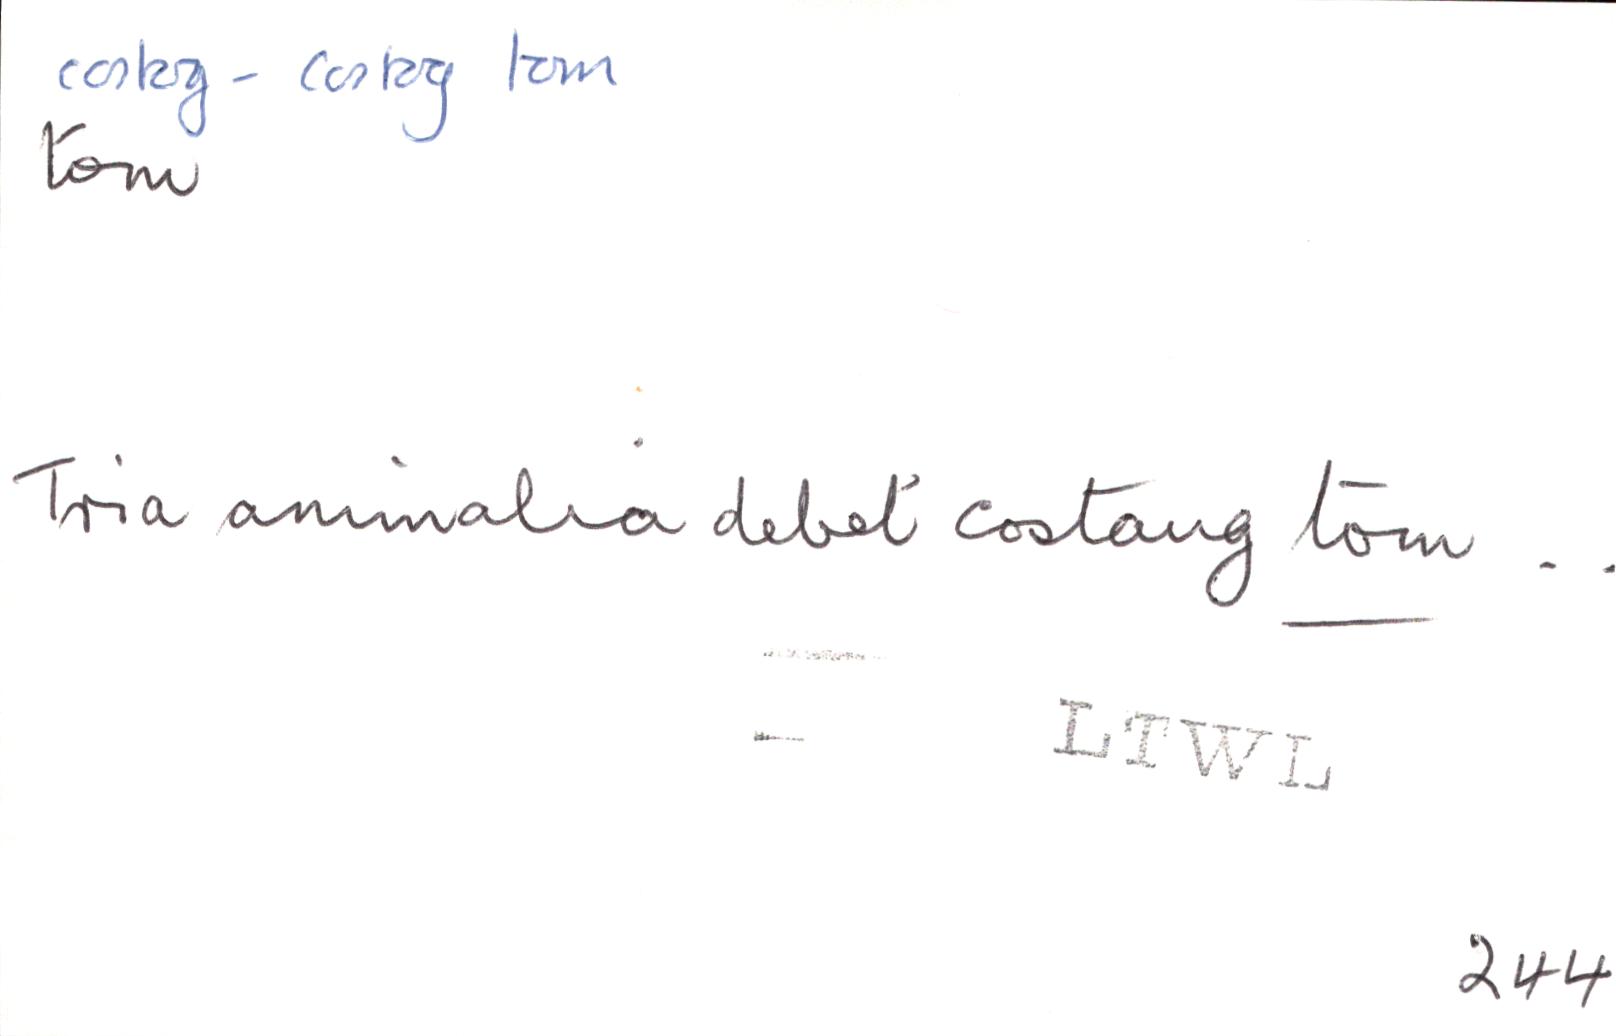 costog - costog tom
tom
Tria animalia debet costaug tom ..
LTWL
244